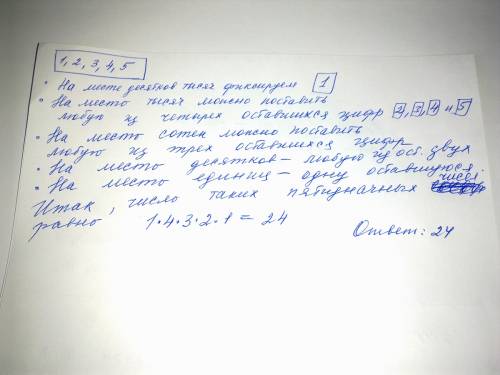 1, 2, 3, 4, 5
• На месте десятков тысяч фиксируем 1
• На место тысяч можно поставить
любую из четырех оставшихся цифр 2, 3, 4 и 5
• На место сотен можно поставить
любую из трех оставшихся цифр
• На место десятков – любую из ост. двух
• На место единиц – одну оставшуюся
Итак, число таких пятизначных чисел
равно 1•4•3•2•1 = 24
Ответ: 24